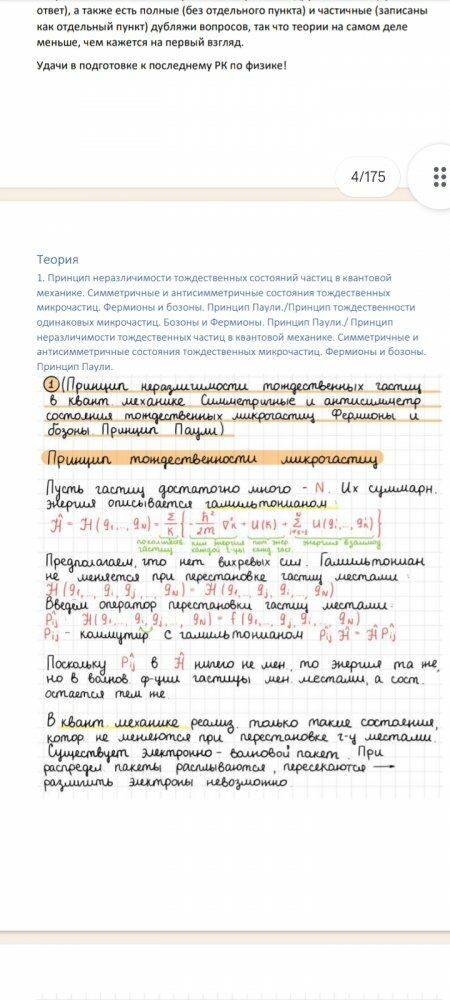 ответ), а также есть полные (без отдельного пункта) и частичные (записаны
как отдельный пункт) дубляжи вопросов, так что теории на самом деле
меньше, чем кажется на первый взгляд.
Удачи в подготовке к последнему РК по физике!
4/175
Теория
1. Принцип неразличимости тождественных состояний частиц в квантовой
механике. Симметричные и антисимметричные состояния тождественных
микрочастиц. Фермионы и бозоны. Принцип Паули./Принцип тождественности
одинаковых микрочастиц. Бозоны и Фермионы. Принцип Паули./ Принцип
неразличимости тождественных частиц в квантовой механике. Симметричные и
антисимметричные состояния тождественных микрочастиц. Фермионы и бозоны.
Принцип Паули.
1 (Принцип неразличимости тождественных частиц
в квант. механике Симметричные и антисимметр
состояния тождественных микрочастиц Фермионы и
бозоны. Принцип Паули)
Принцип тождественности микрочастиц
Пусть частиц достаточно много - N. Их суммарн.
энергия описывается гамильтонианом
Ĥ = H(q₁,..., q_N) = Σ_k {-ħ²/2m ∇²_k + U(k) + Σ U(q_i,..., q_k)}
частиц каждой
Предполагаем, что нет вихревых сил. Гамильтониан
не меняется при перестановке частиц местами:
H(q₁,... q_i q_j ... q_N) = H(q₁,... q_j q_i ... q_N)
Введём оператор перестановки частиц местами:
P̂_ij · H(q₁,... q_i q_j ... q_N) = f(q₁,... q_j q_i ... q_N)
P̂_ij - коммутир с гамильтонианом P̂_ij Ĥ = Ĥ P̂_ij
Поскольку P̂_ij в Ĥ ничего не мен, то энергия та же,
но в волнов. ф-ции частицы мен. местами, а сост.
остается тем же.
В квант. механике реализ. только такие состояния,
котор не меняются при перестановке ч-ц местами.
Существует электронно-волновой пакет. При
распредел пакеты расплываются, пересекаются →
различить электроны невозможно